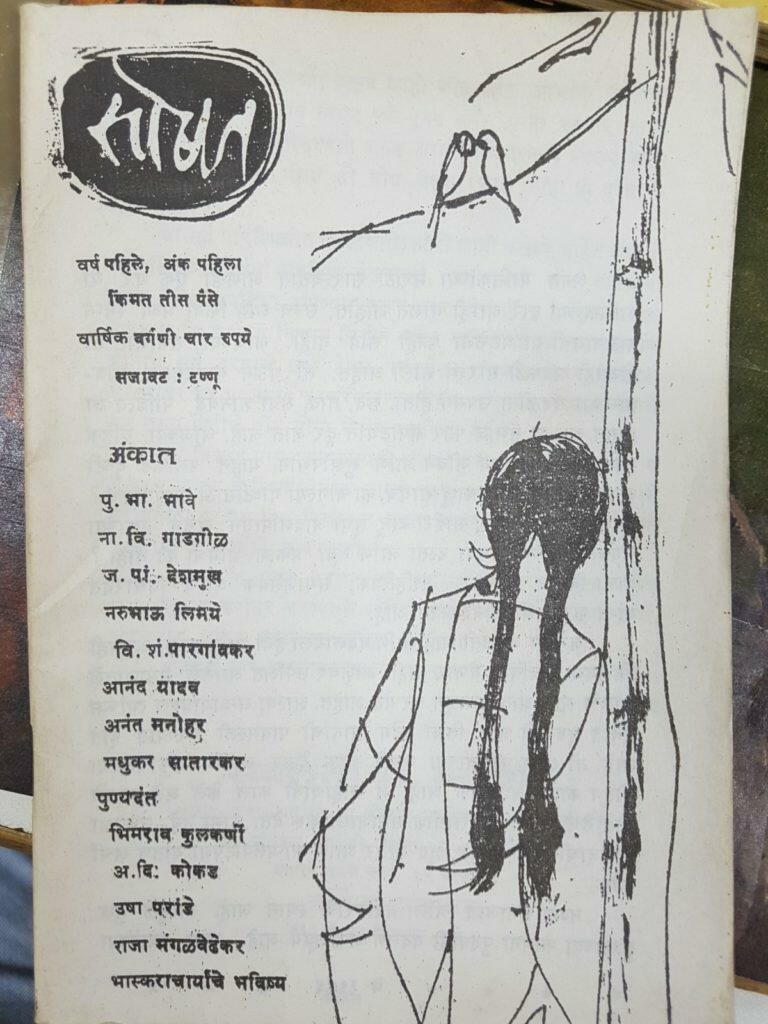 सोबत
वर्ष पहिले, अंक पहिला
किंमत तीस पैसे
वार्षिक वर्गणी चार रुपये
सजावट : टण्णू
अंकात
पु. भा. भावे
ना. वि. गाडगीळ
ज. पां. देशमुख
नरुभाऊ लिमये
वि. शं. पारगांवकर
आनंद यादव
अनंत मनोहर
मधुकर सातारकर
पुण्यदंत
भिमराव कुलकर्णी
अ. दि. कोकड
उषा परांडे
राजा मंगळवेढेकर
भास्कराचार्यांचे भविष्य